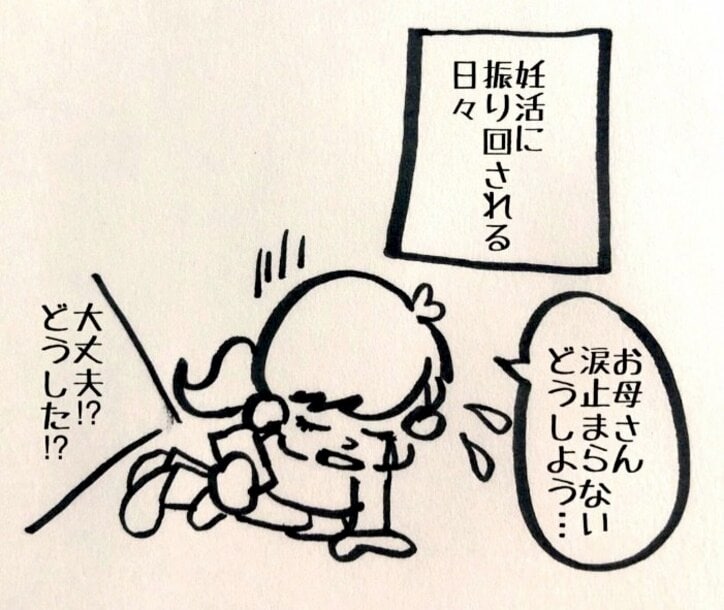 妊活に
振り回される
日々
お母さん
涙止まらない
どうしよう…
大丈夫!?
どうした!?